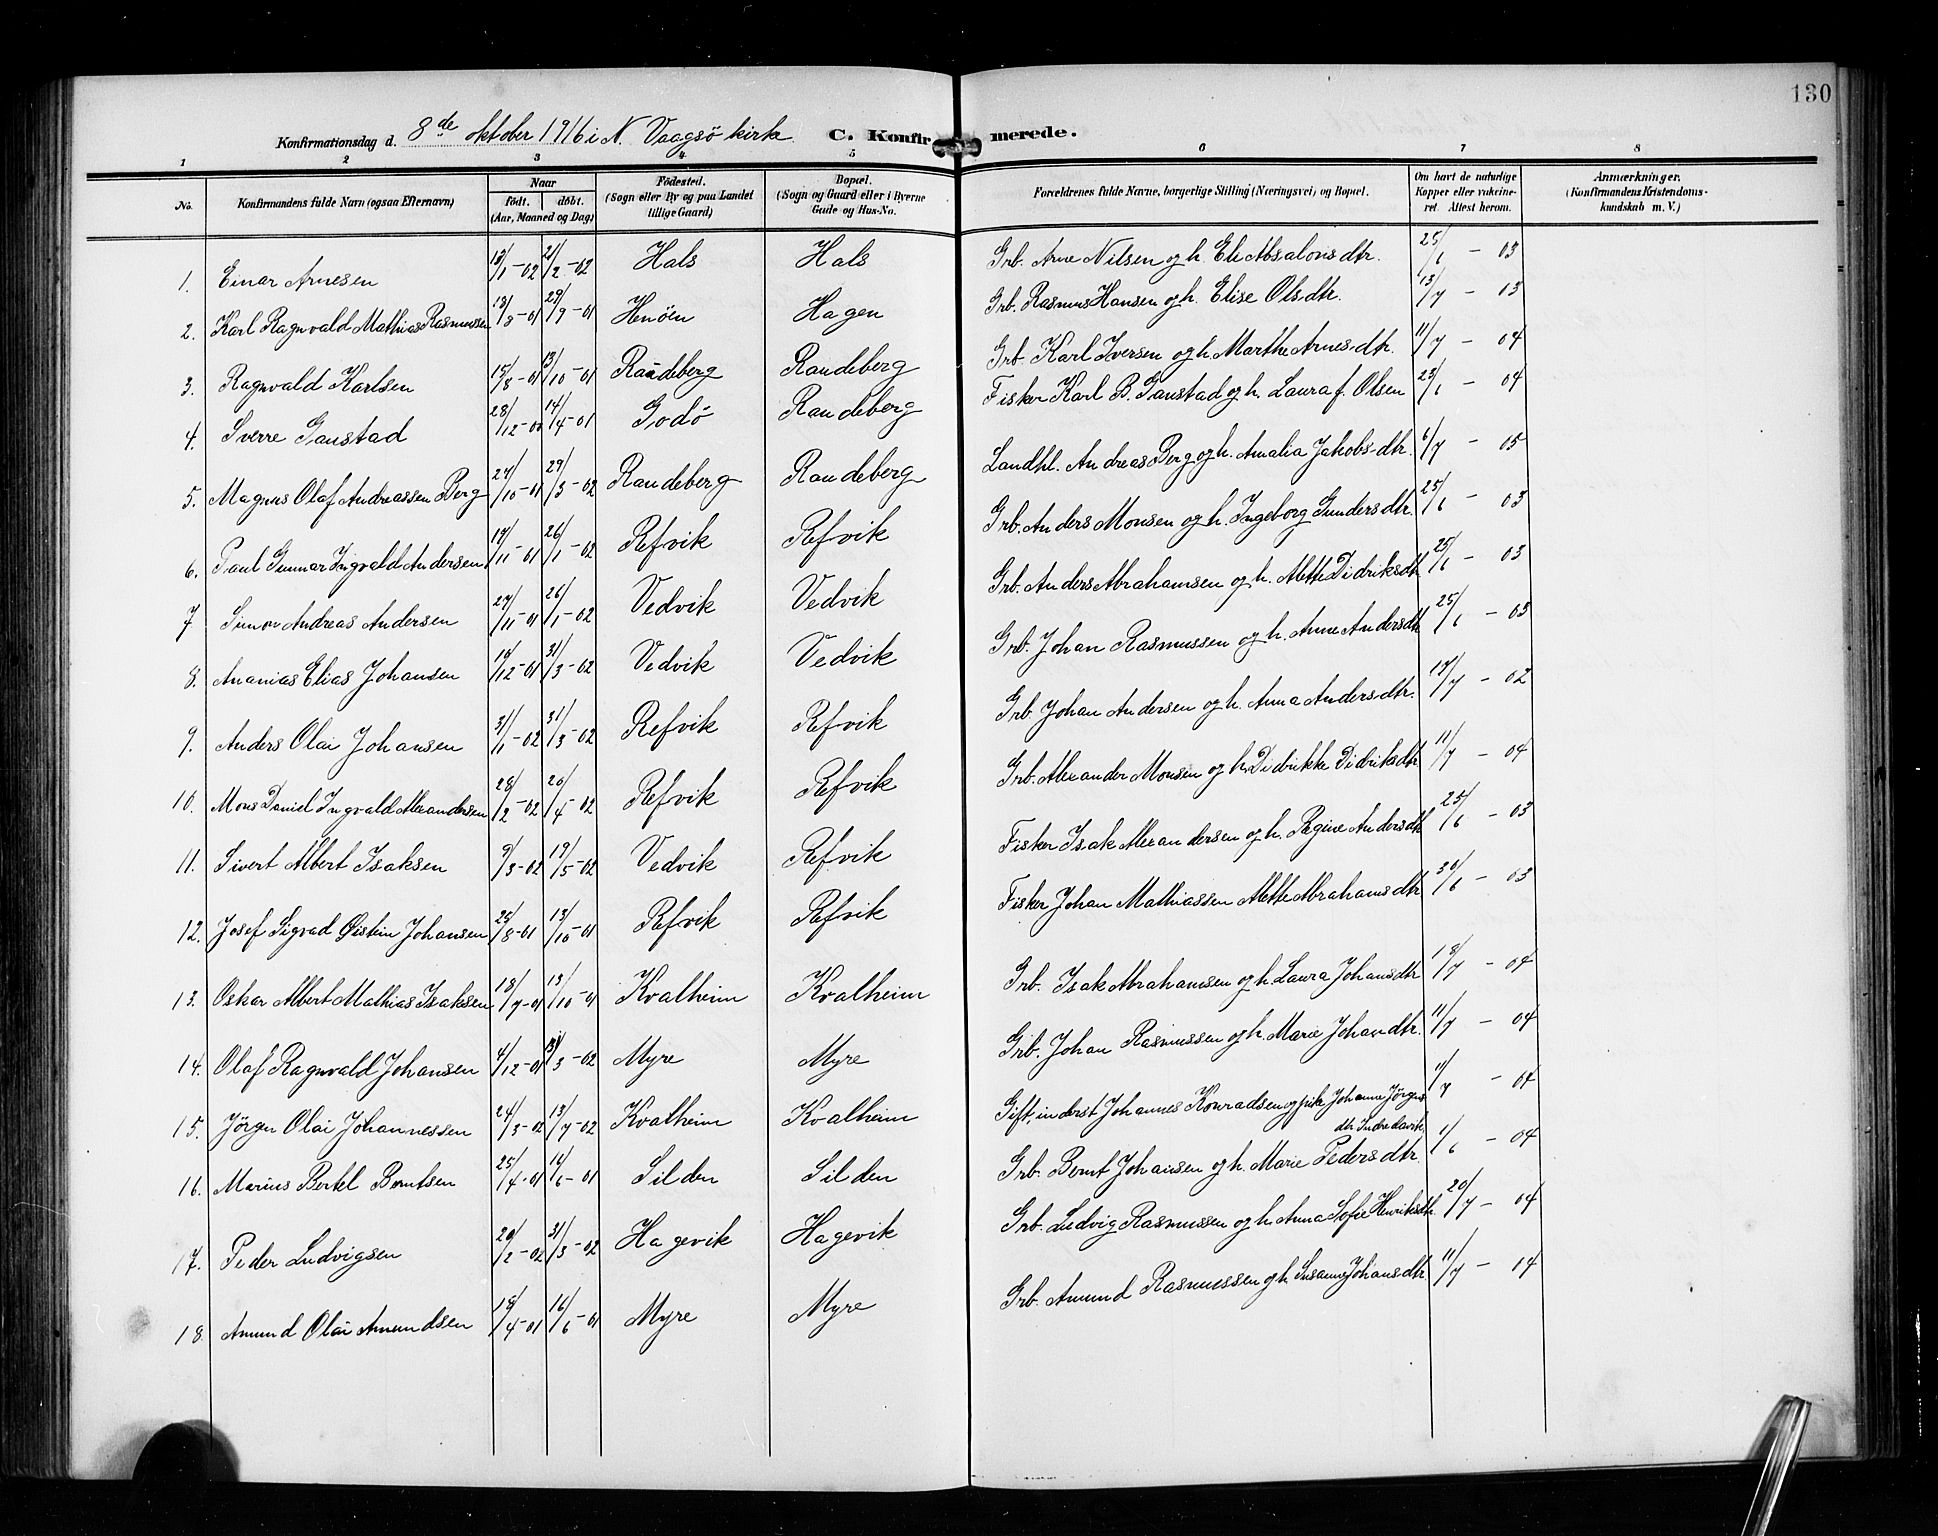 130
Konfirmationsdag d. 8de oktober 1916 i N. Vaagsö kirke C. Konfirmerede.
1 2 3 4 5 6 7 8
No. Konfirmandens fulde Navn (ogsaa Efternavn) Naar født. døbt. (Aar, Maaned og Dag) Fødested. (Sogn eller By og paa Landet tillige Gaard) Bopæl. (Sogn og Gaard eller i Byerne Gade og Hus-No. Forældrenes fulde Navne, borgerlige Stilling (Næringsvei) og Bopæl. Om havt de naturlige Kopper eller vakcineret. Attest herom. Anmærkninger. (Konfirmandens Kristendomskundskab m. V.)
1. Einar Arnesen 13/1-02 2/2-02 Hals Hals Grb. Arne Nilsen og h. Eli Absalonsdtr. 25/6 - 03
2. Karl Ragnvald Mathias Rasmussen 13/8-01 29/9-01 Henöen Hagen Grb. Rasmus Hansen og h. Elise Olsdtr. 13/7 - 13
3. Ragnvald Karlsen 15/8-01 13/10-01 Raudeberg Raudeberg Grb. Karl Iversen og h. Marthe Arnesdtr. 11/7 - 04
4. Sverre Gaustad 28/12-00 14/4-01 Godö Raudeberg Fisker Karl B. Gaustad og h. Laura f. Olsen 23/6 - 04
5. Magnus Olaf Andreassen Berg 27/10-01 29/3-02 Raudeberg Raudeberg Landhl. Andreas Berg og h. Amalia Jakobsdtr. 6/7 - 05
6. Paul Gunnar Ingvald Andersen 17/11-01 26/1-02 Refvik Refvik Grb. Anders Monsen og h. Ingeborg Gundersdtr. 25/6 - 03
7 Simon Andreas Andersen 27/11-01 26/1-02 Vedvik Vedvik Grb. Anders Abrahamsen og h. Mette Didriksdtr 25/6 - 03
8. Ananias Elias Johansen 16/12-01 31/3-02 Vedvik Vedvik Grb. Johan Rasmussen og h. Anne Andersdtr 25/6 - 03
9. Anders Olai Johansen 31/1-02 31/3-02 Refvik Refvik Grb. Johan Andersen og h. Anna Andersdtr. 17/7 - 02
10. Mons Daniel Ingvald Alexandersen 28/2-02 20/4-02 Refvik Refvik Grb. Alexander Monsen og h. Didrikke Didriksdtr 11/7 - 04
11. Sivert Albert Isaksen 9/3-02 19/5-02 Vedvik Refvik Fisker Isak Alexandersen og h. Regine Andersdtr 25/6 - 03
12. Josef Sigvad Øistein Johansen 25/8-01 13/10-01 Refvik Refvik Fisker Johan Mathiassen Mette Abrahamsdtr 30/6 - 03
13. Oskar Albert Mathias Isaksen 18/7-01 13/10-01 Kvalheim Kvalheim Grb. Isak Abrahamsen og h. Laura Johansdtr 18/7 - 04
14. Olaf Ragnvald Johansen 4/12-01 31/3-02 Myre Myre Grb. Johan Rasmussen og h. Marie Johandtr. 11/7 - 04
15. Jörgen Olai Johannessen 24/3-02 13/7-02 Kvalheim Kvalheim Gift, inderst Johannes Konradsen og pike Johanne Jörgens
dtr.
11/7 - 04
16. Marius Bertel Berntsen 25/4-01 16/6-01 Silden Silden Grb. Bernt Johansen og h. Marie Pedersdtr. 1/6 - 04
17. Peder Ludvigsen 20/2-02 31/3-02 Hagevik Hagevik Grb. Ludvig Rasmussen og h. Anna Sofie Henriksdtr 20/7 - 04
18. Amund Olai Amundsen 18/4-01 16/6-01 Myre Myre Grb. Amund Rasmussen og h. Susanne Johansdtr 11/7 - 14